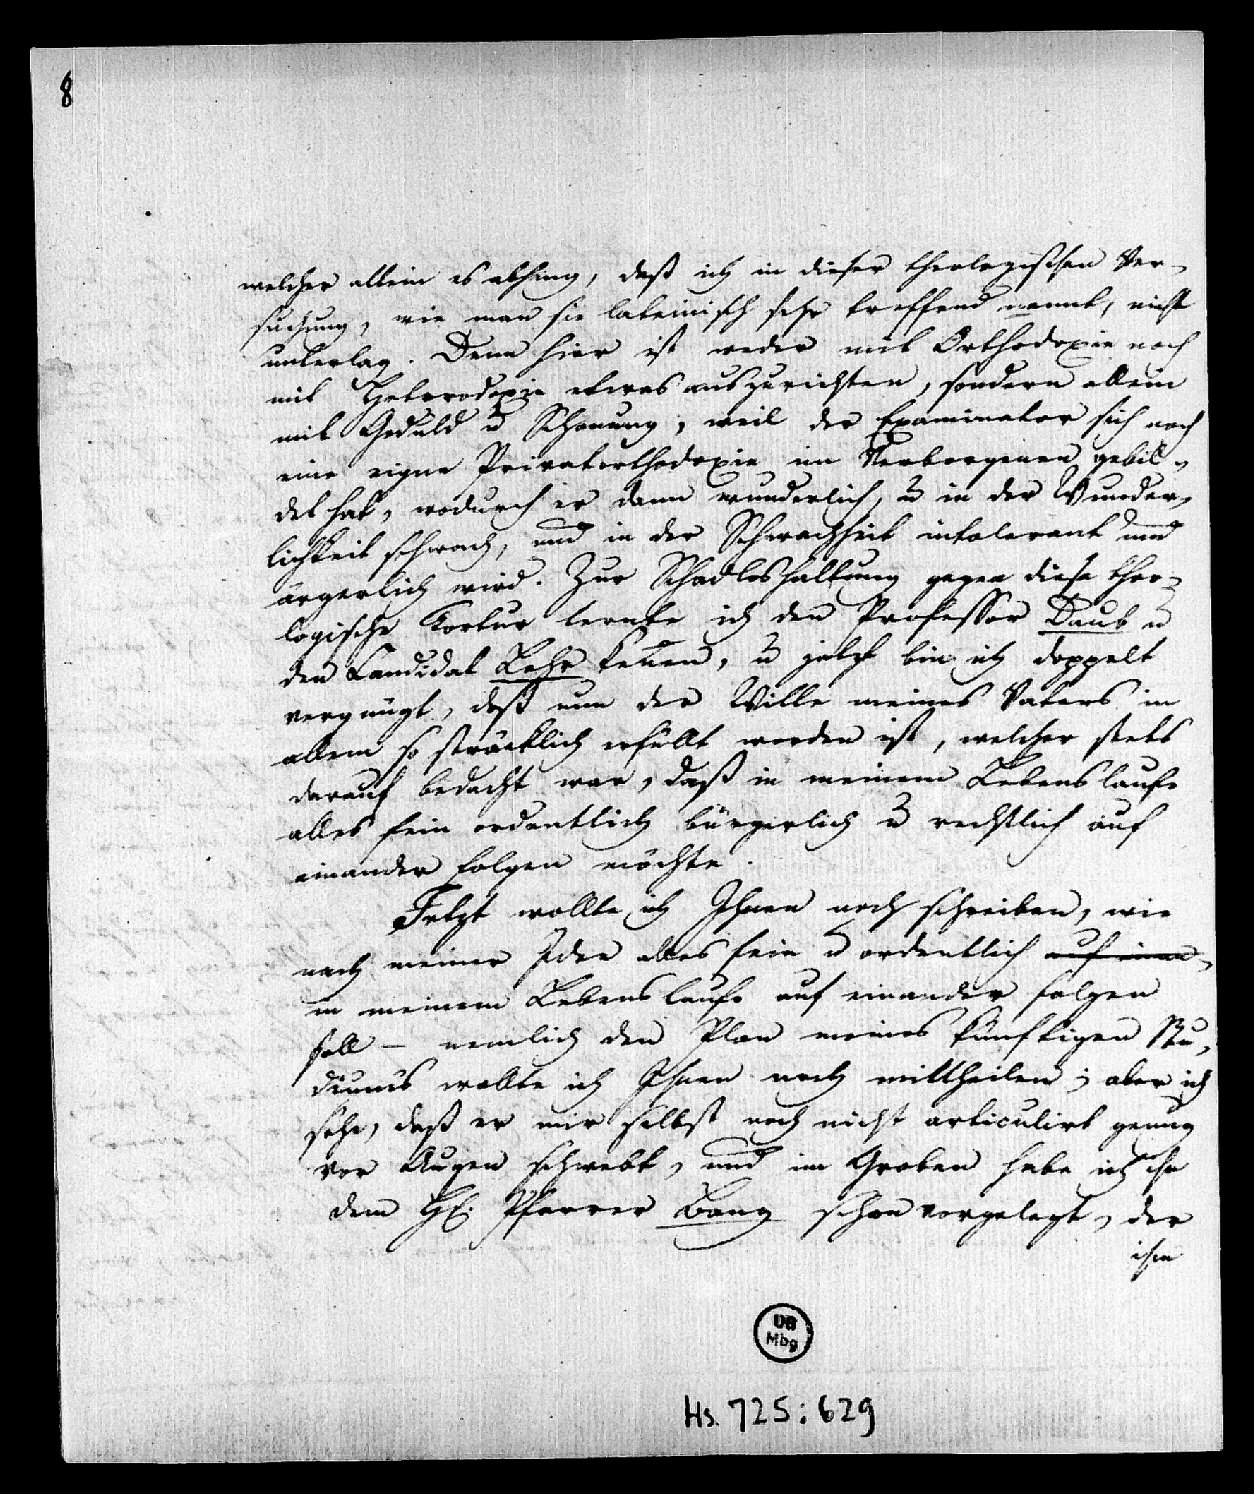 8
welcher allein es abhing, daß ich in dieser theologischen Ver-
suchung, wie man sie lateinisch sehr treffend nennt, nicht
unterlag. Denn hier ist weder mit Orthodoxie noch
mit Heterodoxie etwas auszurichten, sondern allein
mit Geduld u Schonung, weil der Examinator sich noch
eine eigne Privatorthodoxie im Verborgenen gebil-
det hat, wodurch er dann wunderlich, u in der Wunder-
lichkeit schwach, und in der Schwachheit intolerant und
ärgerlich wird. Zur Schadloshaltung gegen diese theo-
logische Tortur lernte ich den Professor Daub u
den Candidat Lehr kennen, u jetzt bin ich doppelt
vergnügt, daß nun der Wille meines Vaters in
allem so sträcklich erfüllt worden ist, welcher stets
darauf bedacht war, daß in meinem Lebenslaufe
alles fein ordentlich bürgerlich u rechtlich auf
einander folgen möchte.
Jetzt wollte ich Ihnen noch schreiben, wie
nach meiner Idee alles fein u ordentlich auf einan-
in meinem Lebenslaufe auf einander folgen
soll – nemlich den Plan meines künftigen Stu-
diums wollte ich Ihnen noch mittheilen; aber ich
sehe, daß er mir selbst noch nicht articulirt genug
vor Augen schwebt, und im Groben habe ich ihn
dem H. Pfarrer Bang schon vorgelegt, der
ihn
UB
Mbg
Hs. 725:629